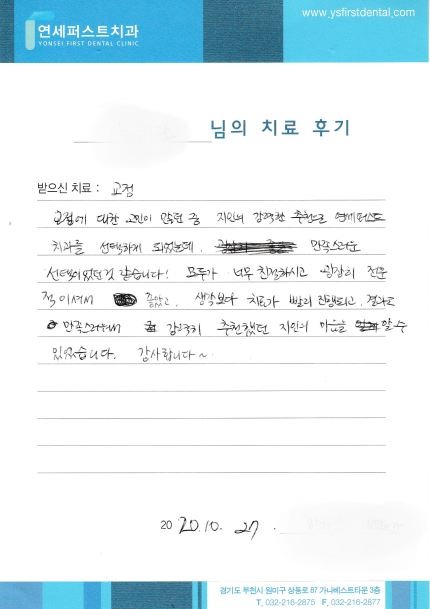 www.ysfirstdental.com
연세퍼스트치과
YONSEI FIRST DENTAL CLINIC
님의 치료 후기
받으신 치료 : 교정
교정에 대한 고민이 많던 중 지인의 강력한 추천으로 연세퍼스트
치과를 선택하게 되었는데, 만족스러운
선택이었던것 같습니다! 모두가 너무 친절하시고 굉장히 전문
적이셔서 좋았고, 생각보다 치료가 빨리 진행되고, 결과도
만족스러워서 강력히 추천했던 지인의 마음을 알 수
있었습니다. 감사합니다~
2020.10. 27
경기도 부천시 원미구 상동로 87 가나베스트타운 3층
T. 032-216-2875 F. 032-216-2877